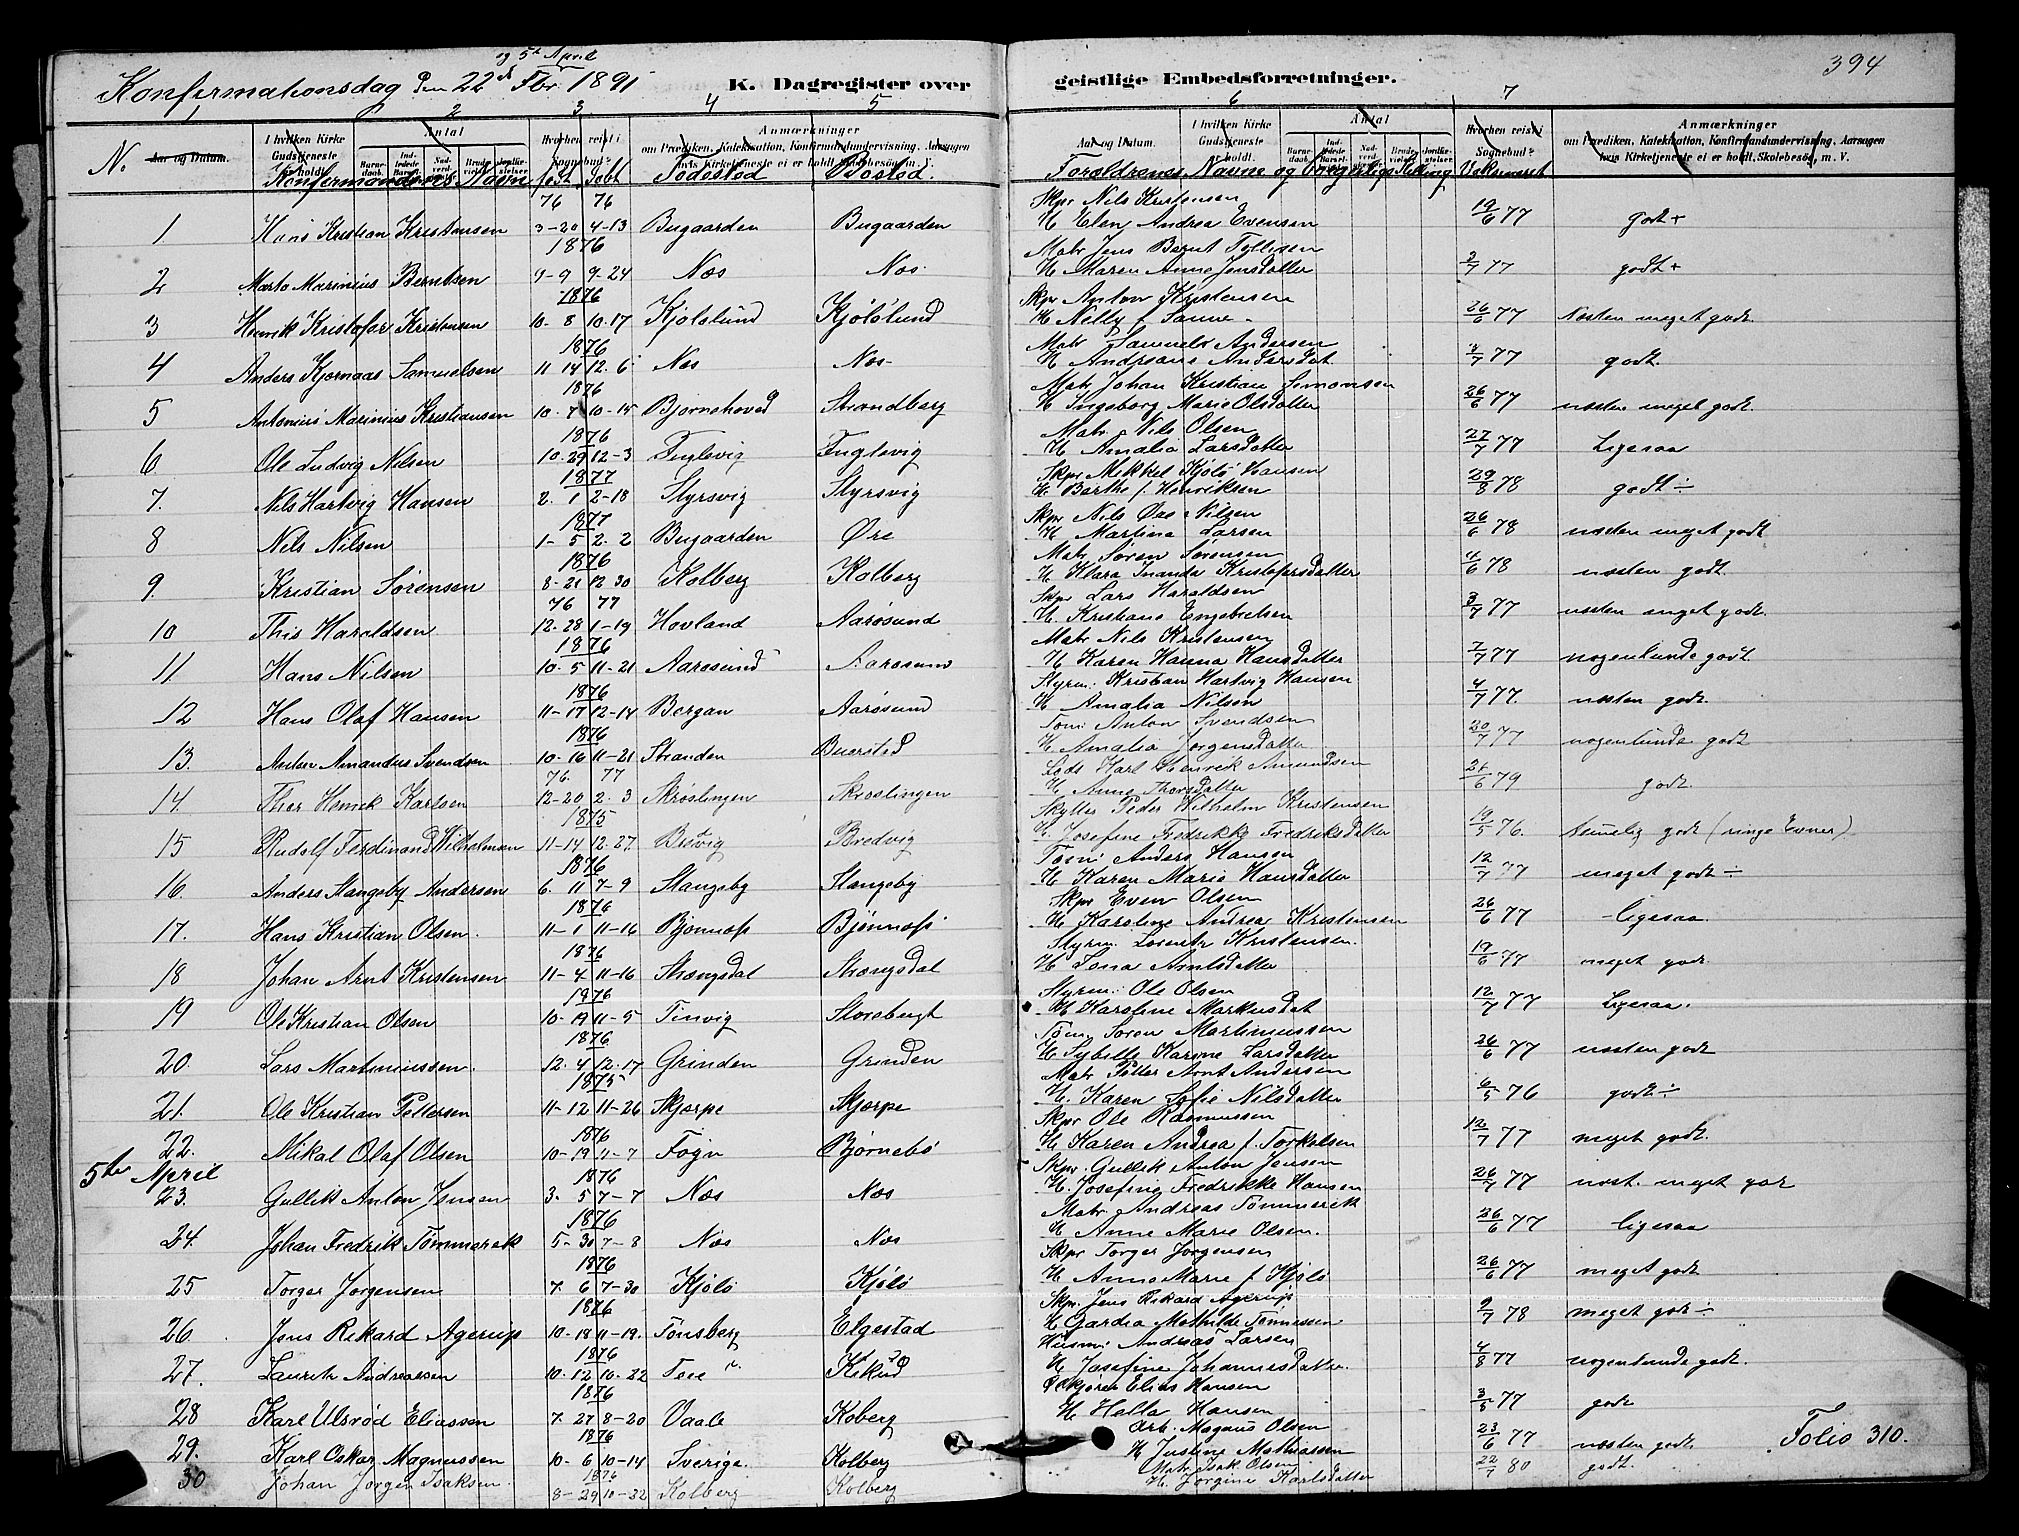 og 5te April
Konfirmationsdag den 22de Fbr. 1891
K. Dagregister over geistlige Embedsforretninger.
394
1 2 3 4 5 6 7
No. Aar og Datum. I hvilken Kirke Gudstjeneste er holdt. Antal Hvorhen reist i Sognebud? Anmærkninger om Prædiken, Katekisation, Konfirmandundervisning, Aarsagen hvis Kirketjeneste ei er holdt, Skolebesøg, m. V.
Aar og Datum. I hvilken Kirke Gudstjeneste er holdt. Antal Hvorhen reist i Sognebud? Anmærkninger om Prædiken, Katekisation, Konfirmandundervisning, Aarsagen hvis Kirketjeneste ei er holdt, Skolebesøg, m. V.
Konfirmandernes Navn født Døbt Fødested Bosted. Forældrenes Navne og borgerlige Stilling Vaksineret
76 76 Skpr Nils Kristensen
1 Hans Kristian Kristensen 3-20 4-13 Bugaarden Bugaarden H Elen Andrea Evensen 19/6 77 godt +
1876 Matr Jens Bernt
2 Marto Marinius Berntsen 9-9 9-24 Næs Næs H Maren Anne Jensdatter 2/7 77 godt +
1876 Skpr Anton Kristensen
3 Henrik Kristofer Kristensen 10-8 10-17 Kjøløsund Kjøløsund H Nilly f Sanne 26/6 77 Næsten meget godt
1876 Matr Samuel Andersen
4 Anders Kjernaas Samuelsen 11 14 12. 6 Næs Næs H Andreane Andersdat. 3/7 77 godt.
1876 Matr Johan Kristian Simonsen
5 Antonius Marinius Kristiansen 10-7 10-15 Bjørnehoved Strandberg H Ingeborg Marie Olsdatter 26/6 77 næsten meget godt.
1876 Matr. Nils Olsen
6 Ole Ludvig Nilsen 10-29 12-3 Fuglevig Fuglevig H Amalia Larsdatter 27/7 77 Ligesaa
1877 Skpr Mikkel Kjølø Hansen
7. Nils Hartvig Hansen 2. 1 2-18 Styrsvig Styrsvig H Berthe f. Henriksen 29/8 78 godt ÷
1877 Skpr Nils Øre Nilsen
8 Nils Nilsen 1-5 2. 2 Bugaarden Øre H Martine Larsen 26/6 78 næsten meget godt
1876 Matr Søren Sørensen
9. Kristian Sørensen 8-21 12 30 Kolberg Kolberg H Klara Inanda Kristofersdatter 4/6 78 næsten godt.
76 77 Skpr Lars Haraldsen
10 This Haraldsen 12-28 1-19 Hovland Aarøsund H. Kristiane Engebretsen 3/7 77 næsten meget godt.
1876 Matr Nils Kristensen
11. Hans Nilsen 10-5 11-21 Aarøsund Aarøsund H Karen Hanna Hansdatter 2/7 77 nogenlunde godt.
1876 Styrm. Kristian Hartvig Hansen
12 Hans Olaf Hansen 11-17 12-14 Bergan Aarøsund H Amalia Nilsen 4/7 77. næsten godt.
1876 Tøm. Anton Svendsen
13. Anton Amandus Svendsen 10-16 11-21 Stranden Buersted H. Amalia Jørgensdatter 20/7 77 nogenlunde godt
76. 77 Lods Karl Henrik Amundsen
14. Thor Henrik Karlsen 12-20 2. 3 Skrøslingen Skrøslingen H Anne Thorsdatter 21/6 79 godt.
1875 Skytter Peder Wilhelm Kristensen
15 Rudolf Ferdinand Wilhelmsen 11-14 12. 27. Bredvig H. Josefine Fredrikke Fredriksdatter 19/5 76. temelig godt (ringe Evner)
1876 Tøm: Anders Hansen
16. Anders Stangeby Andersen 6. 11 7-9 Stangeby Stangeby H Karen Marie Hansdatter 12/7 77 meget godt ÷
1876 Skpr Even Olsen
17. Hans Kristian Olsen. 11-1 11-16 Bjønnæs Bjønnæs H Karoline Andrea Kristensen 26/6 77 - ligesaa
1876 Styrm. Lorentz Kristensen.
18 Johan Arnt Kristensen 11-4 11-16 Strængsdal Strængsdal H Lona Arntsdatter 19/6 77 meget godt.
1876 Styrm: Ole Olsen
19 Ole Kristian Olsen 10-19 11-5 Tinvig Storebergt H Karoline Markusdat 12/7 77 Ligesaa.
1876 Tøm, Søren Martinussen
20. Lars Martiniussen. 12. 4 12. 17 Grinden Grinden H. Sybille Karine Larsdatter 26/6 77 næsten godt
1875 Matr Petter Arnt Andersen
21. Ole Kristian Pettersen 11-12 11-26 Skjærpe Skjærpe H. Karen Sofie Nilsdatter 6/5 76 godt ÷
1876 Skpr Ole Rasmussen
22. Mikal Olaf Olsen 10-19 11-7 Føgn Bjørnebø H Karen Andrea f. Torkelsen 12/7 77 meget godt.
5te April 1876 Skpr. Gullik Anton Jensen
23. Gullik Anton Jensen 3. 5 7-7 Næs Næs H. Josefine Fredrikke Hansen 26/7 77 næst. meget godt
1876 Matr. Andreas Tømmerek
24. Johan Fredrik Tømmerek 5-30 7-8 Næs Næs H Anne Marie Olsen. 26/6 77 ligesaa
1876 Skpr Torger Jørgensen
25 Torger Jørgensen 7. 6 7-30 Kjølø Kjølø H Anne Marie f Kjølø 26/6 77 meget godt
1876 Skpr. Jens Rikard Agerup
26. Jens Rikard Agerup 10-18 11-19. Tønsberg Elgestad H Gardea Mathilde Tønnessen 9/7 78 meget godt ÷
1876 Husm: Andreas Larsen
27. Lauritz Andreassen 10-12 10-22 Teie Kikud H Josefine Johannesdatter. 4/8 77 nogenlunde godt.
1876 Elias Hansen
28 Karl Ulsrød Eliassen 7. 27 8-20 Vaale Koberg H Hella Hansen 3/5 77 godt
1876 Arb. Magnus Olsen
29. Karl Oskar Magnussen 10-6 10-14 Sverige. Kolberg H Justine Mathiassen 23/6 77 næsten godt. Folio 310.
1876 Matr Isak Olsen
30 Johan Jørgen Isaksen 8-29 10-22 Kolberg Kolberg H. Jørgine Karlsdatter 22/7 80 godt.